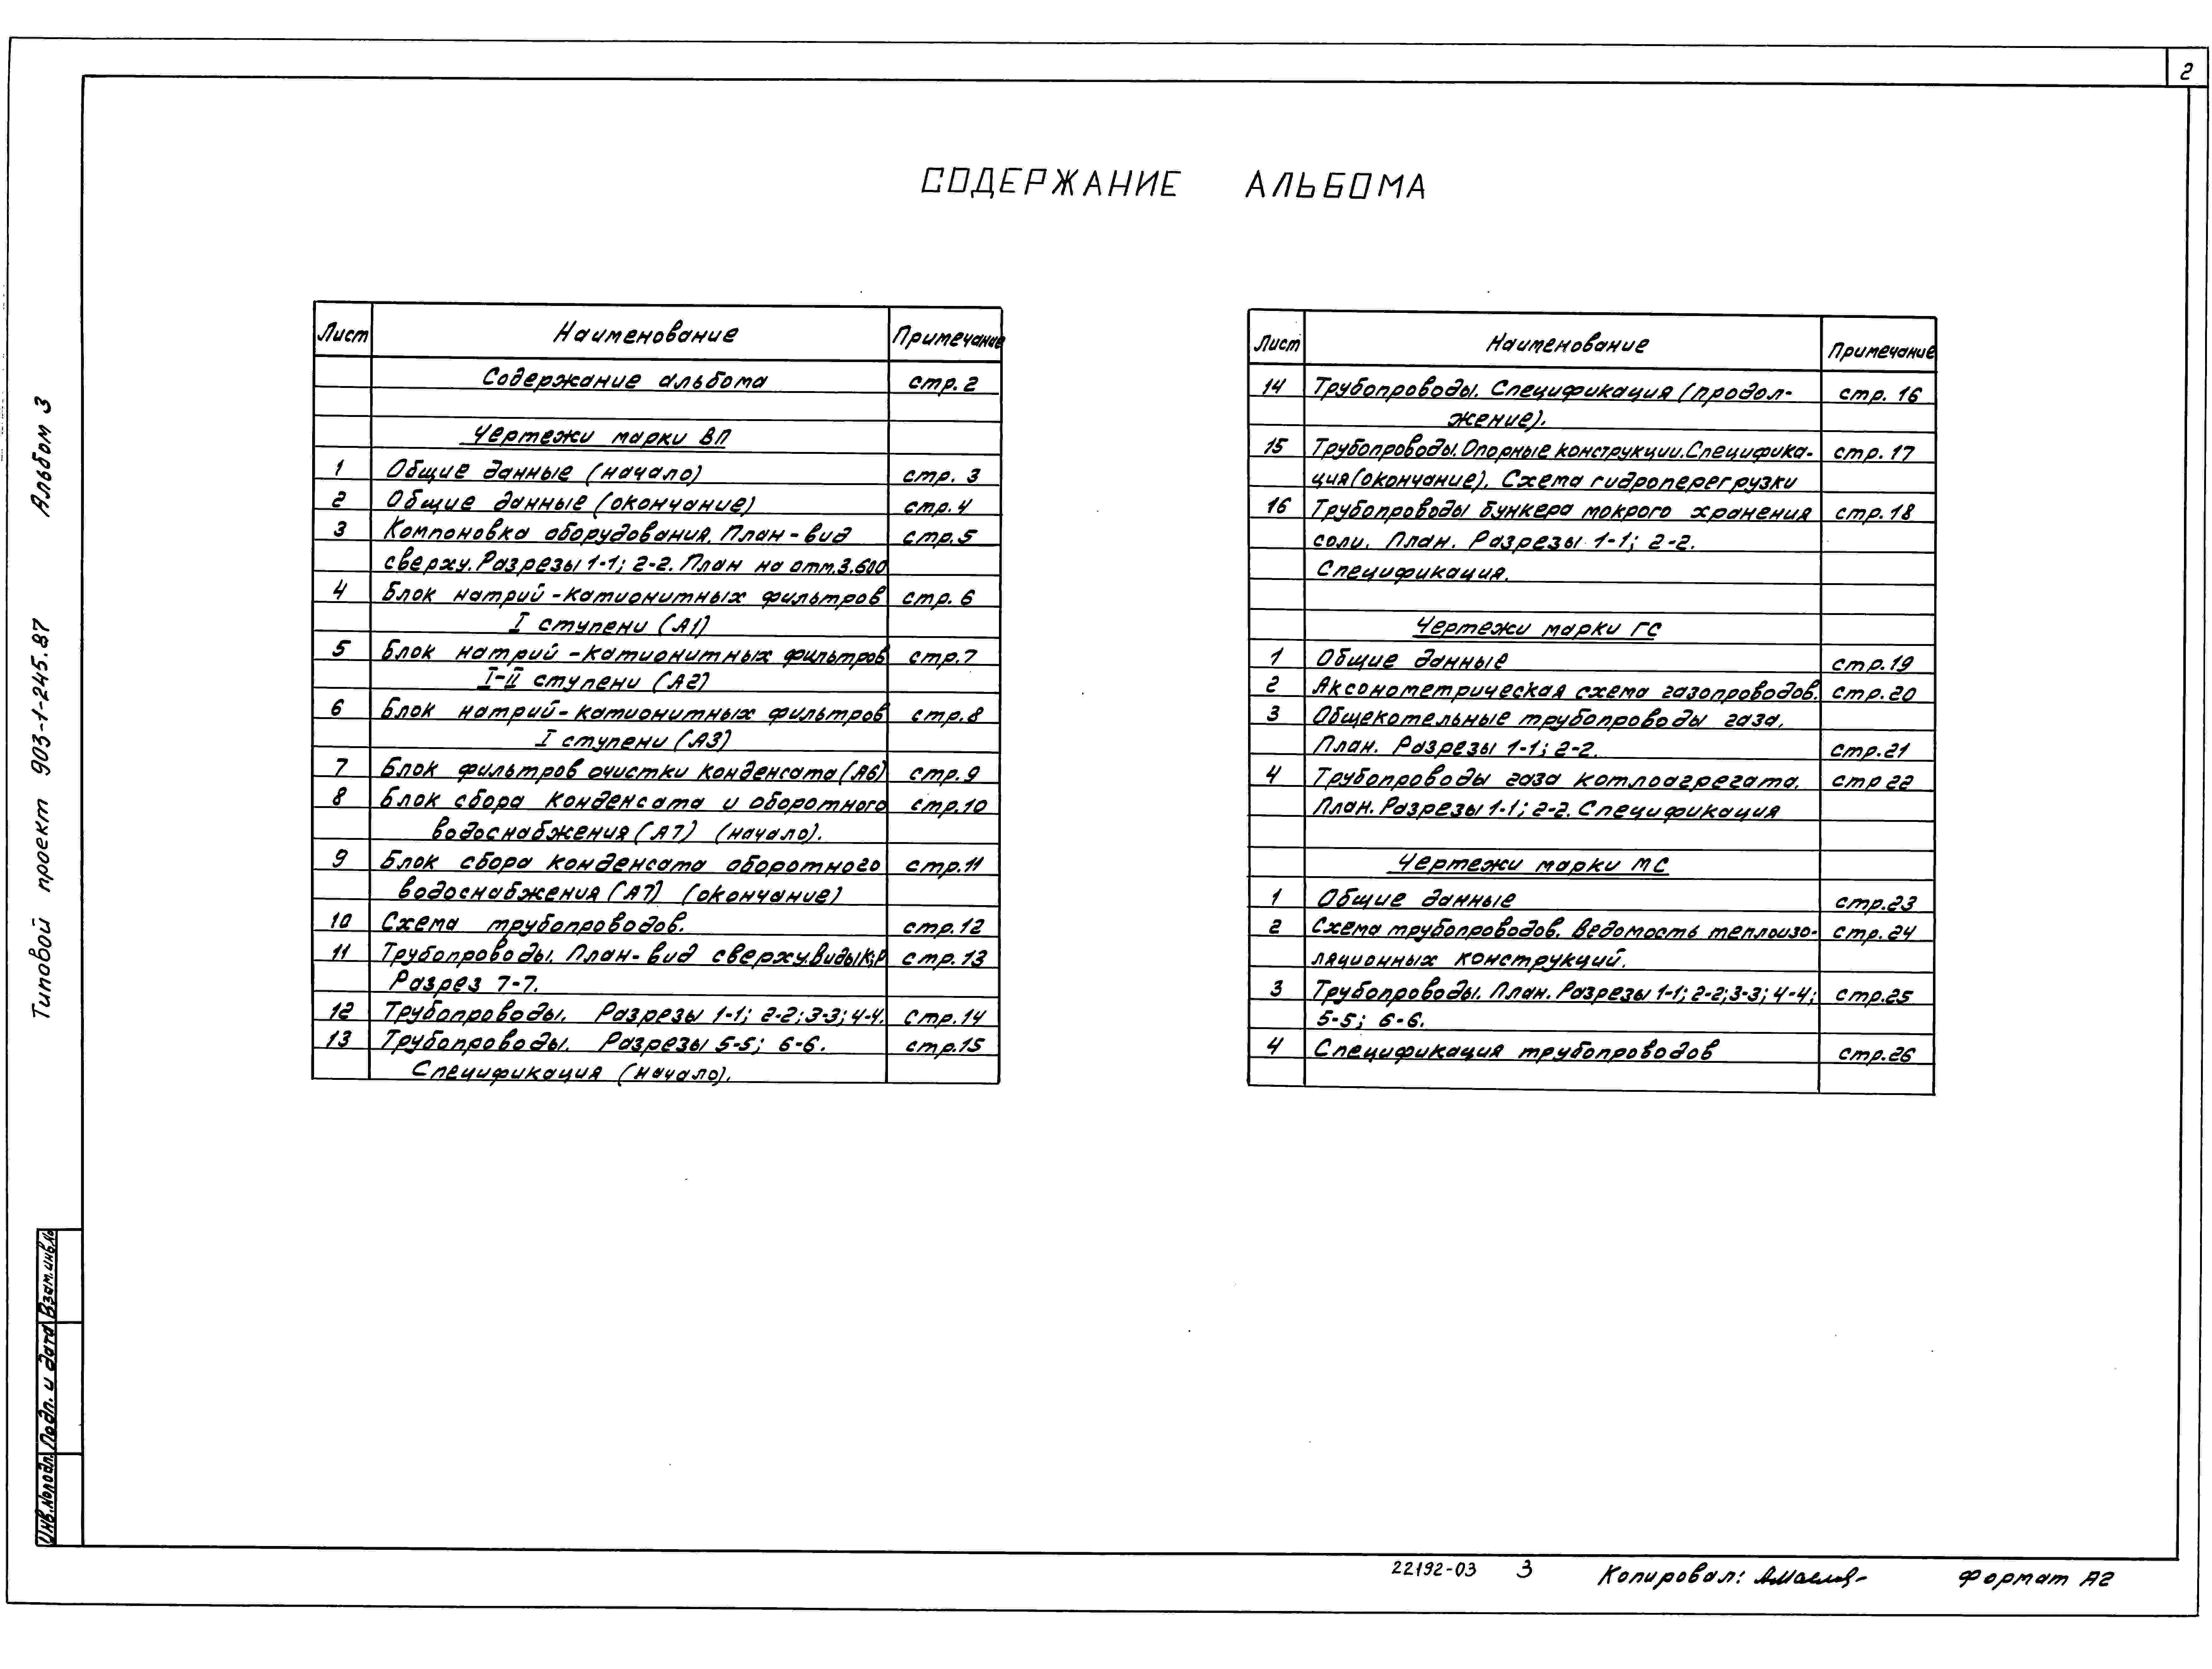 2
СОДЕРЖАНИЕ АЛЬБОМА
Лист Наименование Примечание
Содержание альбома стр. 2
Чертежи марки ВП
1 Общие данные (начало) стр. 3
2 Общие данные (окончание) стр. 4
3 Компоновка оборудования. План-вид стр. 5
сверху. Разрезы 1-1; 2-2. План на отм. 3.600
4 Блок натрий-катионитных фильтров стр. 6
I ступени (А1)
5 Блок натрий-катионитных фильтров стр. 7
I-II ступени (А2)
6 Блок натрий-катионитных фильтров стр. 8
I ступени (А3)
7 Блок фильтров очистки конденсата (А6) стр. 9
8 Блок сбора конденсата и оборотного стр. 10
водоснабжения (А7) (начало).
9 Блок сбора конденсата оборотного стр. 11
водоснабжения (А7) (окончание)
10 Схема трубопроводов. стр. 12
11 Трубопроводы. План-вид сверху. Виды К; Р стр. 13
Разрез 7-7.
12 Трубопроводы. Разрезы 1-1; 2-2; 3-3; 4-4. стр. 14
13 Трубопроводы. Разрезы 5-5; 6-6. стр. 15
Спецификация (начало).
Лист Наименование Примечание
14 Трубопроводы. Спецификация (продол- стр. 16
жение).
15 Трубопроводы. Опорные конструкции. Специфика- стр. 17
ция (окончание). Схема гидроперегрузки
16 Трубопроводы бункера мокрого хранения стр. 18
соли. План. Разрезы 1-1; 2-2.
Спецификация.
Чертежи марки ГС
1 Общие данные стр. 19
2 Аксонометрическая схема газопроводов. стр. 20
3 Общекотельные трубопроводы газа.
План. Разрезы 1-1; 2-2. стр. 21
4 Трубопроводы газа котлоагрегата. стр 22
План. Разрезы 1-1; 2-2. Спецификация
Чертежи марки МС
1 Общие данные стр. 23
2 Схема трубопроводов. Ведомость теплоизо- стр. 24
ляционных конструкций.
3 Трубопроводы. План. Разрезы 1-1; 2-2; 3-3; 4-4; стр. 25
5-5; 6-6.
4 Спецификация трубопроводов стр. 26
Типовой проект 903-1-245.87 Альбом 3
Инв.№подл. Подп. и дата Взам.инв.№
22192-03 3 Копировал: Формат А2